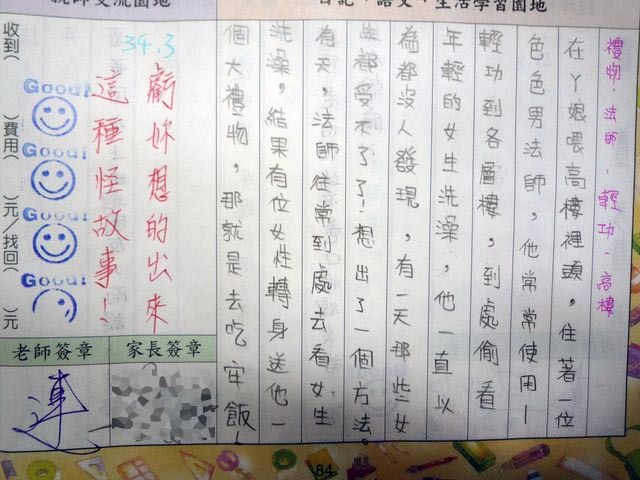 日記、語文、生活學習園地
禮物、法師、輕功、高樓
在丫娘喂高樓裡頭，住著一位
色色男法師，他常常使用
輕功到各層樓，到處偷看
年輕的女生洗澡，他一直以
為都沒人發現，有一天那些女
生都受不了了！想出了一個方法。
有天，法師往常到處去看女生
洗澡，結果有位女性轉身送他一
個大禮物，那就是去吃牢飯！
親師交流園地
34.3
虧妳想的出來
這種怪故事！
Good!
Good!
Good!
Good!
收到（　）費用（　）元／找回（　）元
家長簽章
老師簽章
連
84